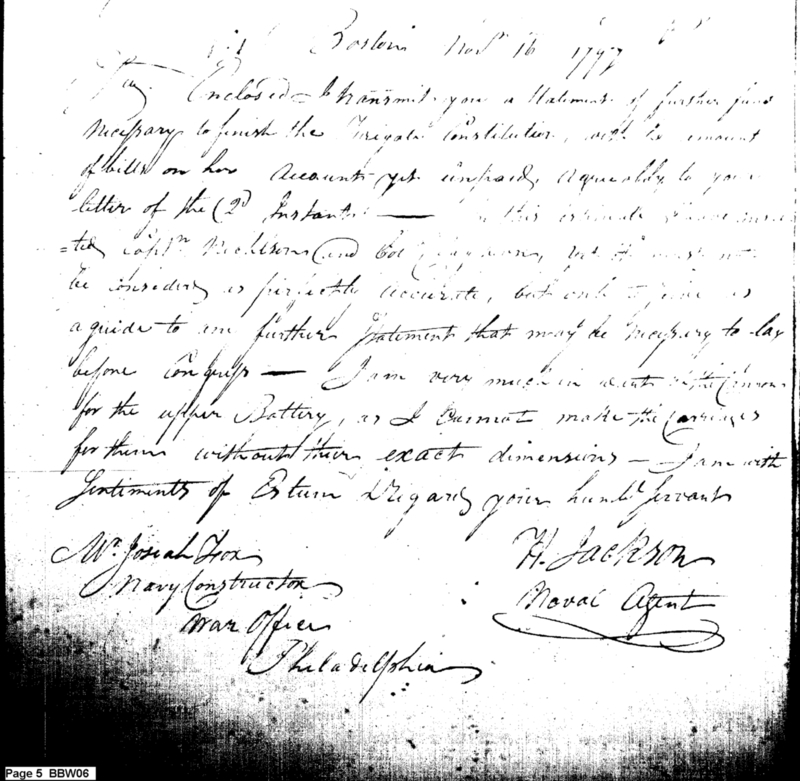 Boston Nov 16 1797
Enclosed I transmit you a Statement of further
necessary to finish the Frigate Constitution, with the amount
of bills on her Account yet unpaid, agreeably to your
letter of the 2d Instant — In this estimate I have
=ted Captn Nicholson and Col Claghorn, but it must not
be considered as perfectly accurate, but only to
a guide to any further Statement that may be necessary to lay
before Congress — I am very much in want of the Cannon
for the upper Battery, as I cannot make the Carriages
for them without their exact dimensions — I am with
Sentiments of Esteem & Regard your humbl Servant
Mr. Josiah Fox H. Jackson
Navy Constructor Naval Agent
War Office
Philadelphia
Page 5 BBW06